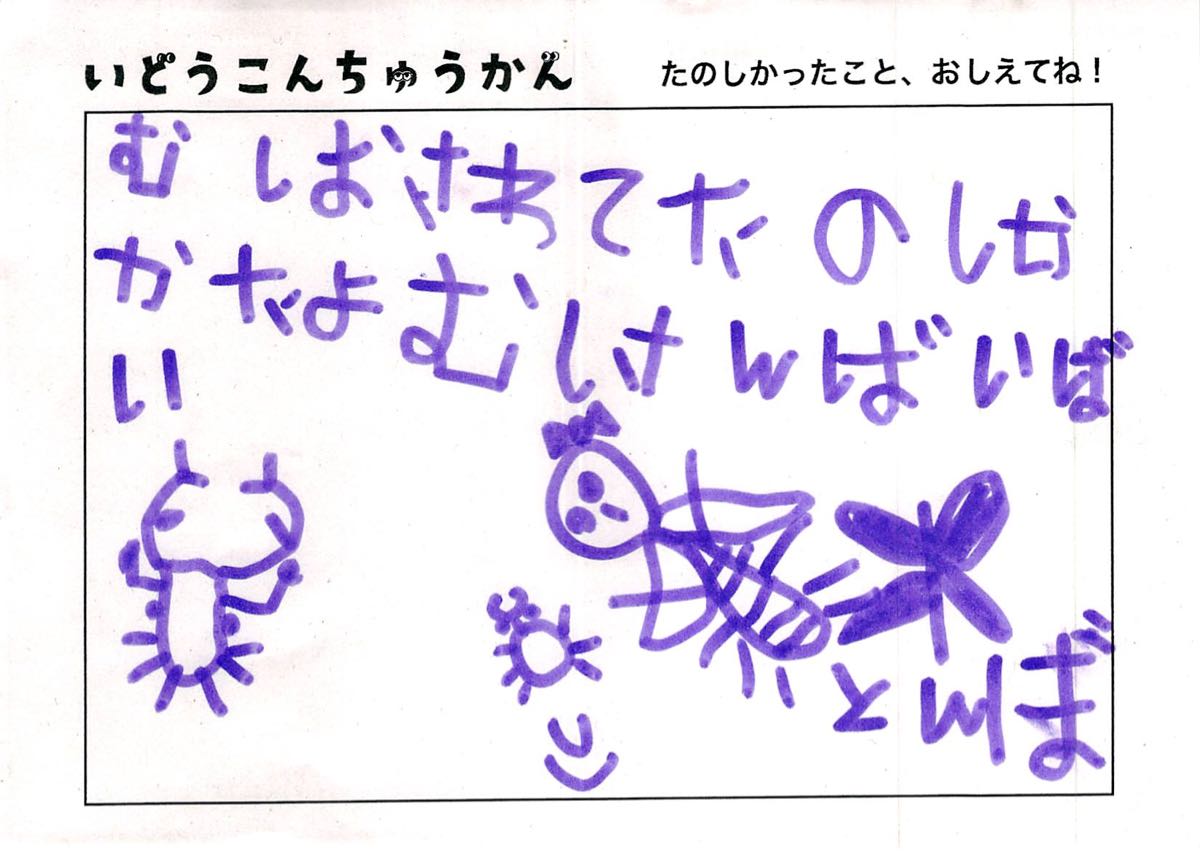 いどうこんちゅうかん
たのしかったこと、おしえてね！
むしおさわてたのしか
かたよむしさんばいば
い
とんぼ